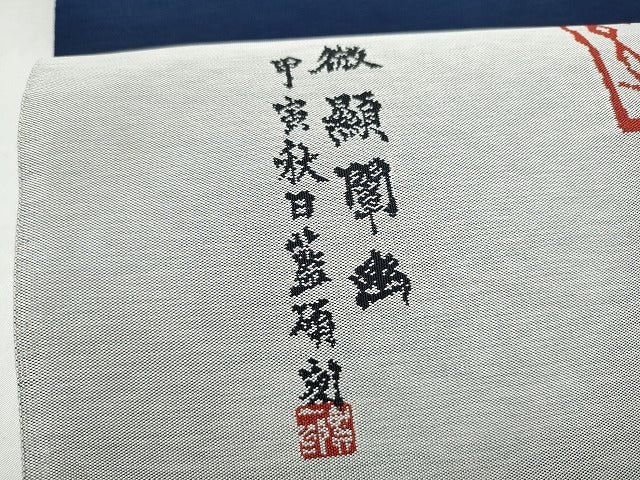 微顯闡幽
甲寅秋日藍碩